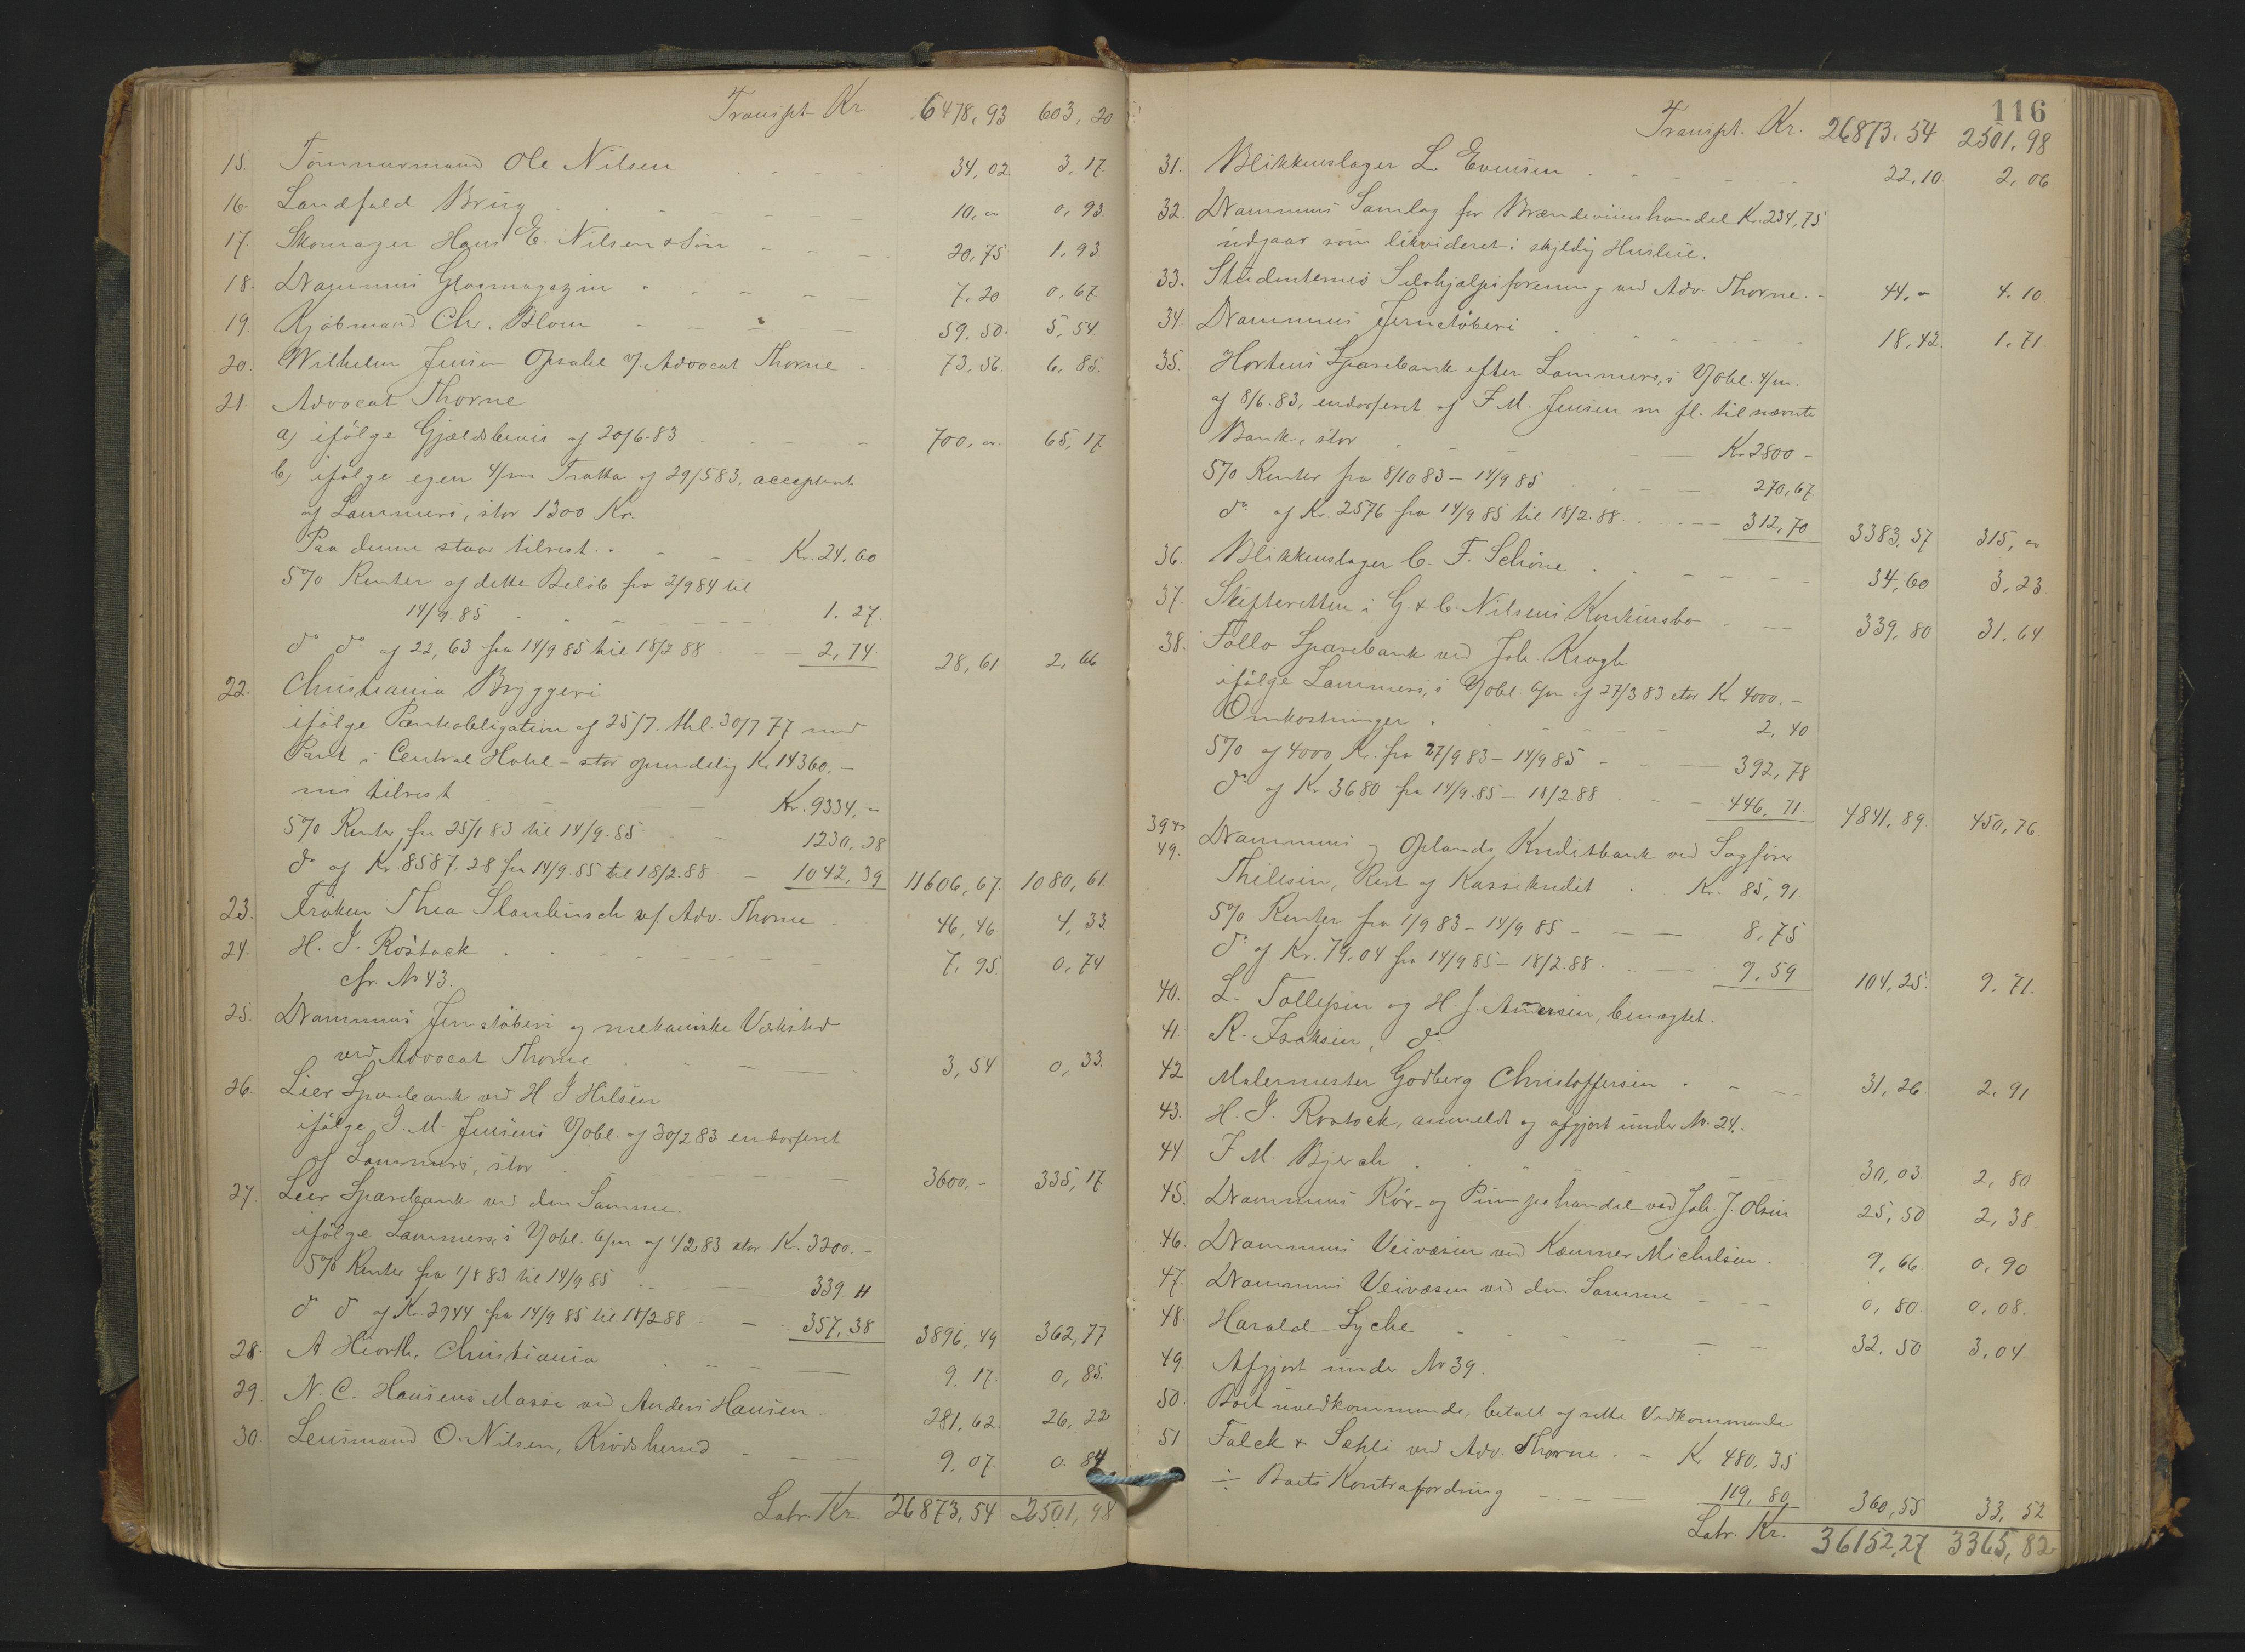 Transpt. Kr. 6478,93 603,20
15. Tømmermand Ole Nilsen 34,02 3,17
16. Landfald Brug 10,00 0,93
17. Skomager Hans E. Nilsen & Søn 20,75 1,93
18. Drammens Glasmagazin 7,20 0,67
19. Kjøbmand Chr. Blom 59.50 5,54
20. Wilhelm Jensen Opsahl v. Advocat Thorne 73,56 6,85
21. Advocat Thorne
a) ifølge Gjældsbevis af 20/6-83 700,00 65,17
b) ifølge egen 4/m Tratta af 29/5 83, accepteret
af Lammers, stor 1300 Kr.
Paa denne staar tilrest Kr. 24.60
5% Renter af dette Beløb fra 2/9 84 til
14/9.85 1.27
do do af 22,63 fra 14/9 85 til 18/2 88 2,74 28,61 2,66
22. Christiania Bryggeri
ifølge Panteobligation af 25/7. thl. 30/7 77 med
Pant i Central Hotel - stor oprindelig Kr. 14360,-
nu tilrest Kr. 9334,-
5% Renter fra 25/1 83 til 14/9.85 1230,28
do af Kr. 8587.28 fra 14/9.85 til 18/2.88 1042,39 11606,67 1080,61
23. Frøken Thea Slambusch v/ Adv. Thorne 46,46 4,33
24. H. J. Rostock 7,95 0,74
cfr. No 43.
25. Drammens Jernstøberi og mekaniske Værksted
ved Advocat Thorne 3,54 0,33
26. Lier Sparebank ved H J Hilsen
ifølge J. M. Jensens Vobl. af 30/2 83 endosseret
af Lammers, stor 3600,- 335,17
27. Lier Sparebank ved den Samme.
ifølge Lammers's Vobl. 6/m af 1/2 83 stor K. 3200.-
5% Renter fra 1/8 83 til 14/9 85 339.11
do do af K. 2944 fra 14/9 85 til 18/2 88 357,38 3896,49 362,77
28. A Hiorth, Christiania 9,17 0,85
29. N. C. Hansens Masse ved Anders Hansen 281,62 26,22
30. Lensmand O. Nilsen, Krødsherred 9,07 0.84
Latr. Kr. 26873,54 2501,98
116
Transpt. Kr. 26873.54 2501,98
31. Blikkenslager L. Evensen 22,10 2,06
32. Drammens Samlag for Brændeviinshandel Kr. 234,75
udgaar som likvideret i skyldig Husleie.
33. Studenternes Selvhjælpsforening ved Adv. Thorne 44,- 4.10
34. Drammens Jernstøberi 18,42 1,71
35. Hortens Sparebank efter Lammers's Vobl. 4/m.
af 8/6.83, endosseret af F. M. Jensen m. fl. til nævnte
Bank, stor Kr. 2800 -
5% Renter fra 8/10 83 - 14/9 85 270,67
do af Kr. 2576 fra 14/9 85 til 18/2.88 312,70 3383,37 315,00
36. Blikkenslager C. F. Schöne 34,60 3,23
37. Skifteretten i G. & C. Nilsens Konkursbo 339,80 31,64
38. Follo Sparebank ved Joh. Krogh
ifølge Lammers's Vobl. 6/m af 27/3 83 stor K. 4000.-
Omkostninger 2,40
5% af 4000 Kr. fra 27/9 83 - 14/9 85 392,78
do af Kr 3680 fra 14/9.85 - 18/2.88 446,71 4841,89 450,76
39 & 49. Drammens og Oplands Kreditbank ved Sagfører
Thilesen, Rest af Kassekredit Kr. 85,91
5% Renter fra 1/9 83 - 14/9 85 8,75
do af Kr. 79.04 fra 14/9 85 - 18/2.88 9,59 104,25 9.71
40. L. Tollefsen og H. J. Andersen, benægtet.
41. R. Isaksen, do
42 Malermester Godberg Christoffersen 31,26 2,91
43. H. J. Rostock, anmeldt og afgjort under No. 24.
44. F. M. Bjerch 30,03 2,80
45. Drammens Rør- og Pumpehandel ved Joh. J. Olsen 25,50 2,38
46. Drammens Veivæsen ved Kæmner Michelsen 9,66 0,90
47. Drammens Veivæsen ved den Samme 0,80 0,08
48. Harald Lyche 32,50 3,04
49. Afgjort under No 39.
50. Boet uvedkommende, betalt af rette Vedkommende
51 Falck & Sæhli ved Adv. Thorne Kr 480,35
÷ Boets Kontrafordring 119,80 360,55 33,52
Latr. Kr. 36152,27 3365,82